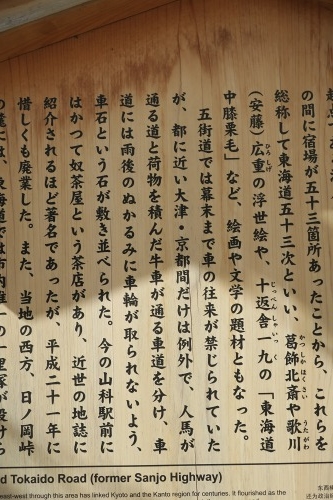 の間に宿場が五十三箇所あったことから、これらを
総称して東海道五十三次といい、葛飾北斎や歌川
かつしかほくさい
うたがわ
(安藤)広重の浮世絵や、十返舎一九の「東海道
ひろしげ
じっぺんしゃいっく
中膝栗毛」など、絵画や文学の題材ともなった。
五街道では幕末まで車の往来が禁じられていた
が、都に近い大津・京都間だけは例外で、人馬が
通る道と荷物を積んだ牛車が通る車道を分け、車
道には雨後のぬかるみに車輪が取られないよう、
車石という石が敷き並べられた。今の山科駅前に
はかつて奴茶屋という茶店があり、近世の地誌に
紹介されるほど著名であったが、平成二十一年に
惜しくも廃業した。また、当地の西方、日ノ岡峠
d Tokaido Road (former Sanjo Highway)
east-west through this area has linked Kyoto and the Kanto region for centuries. It flourished as the